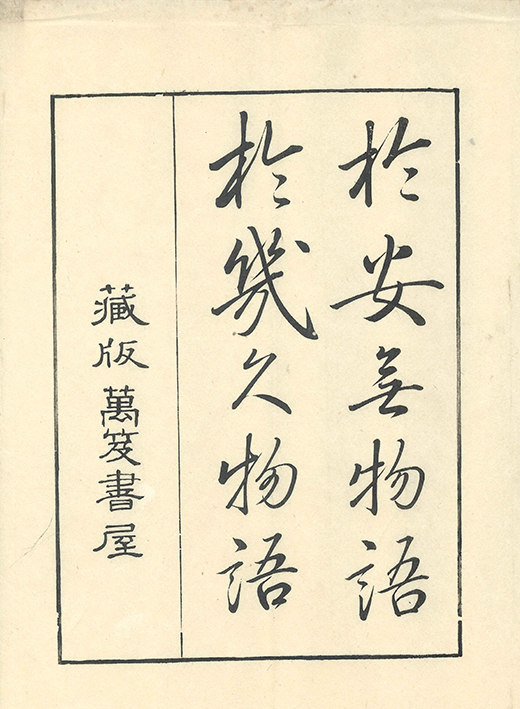 於安無物語
於幾久物語
藏版 萬笈書屋